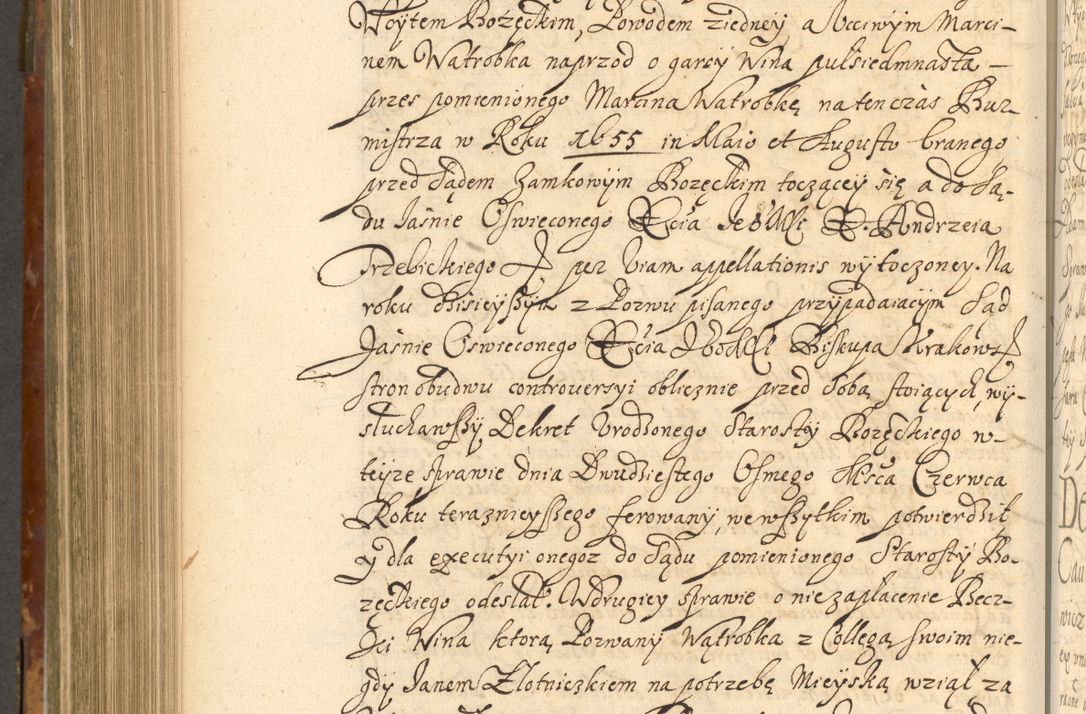 Woytem Bożęckim, Powodem ziedney, a Ucciwym Marci-
nem Wątrobką naprzod o garcy Wina pułsiedmnasta –
przes pomienionego Marcina Wątrobkę, na ten czás Bur-
mistrza w Roku 1655 in Maio et Augusto branego
przed Sądem Zamkowym Bozęckim toczącey się, a do Są-
du Iaśnie Oświeconego Xcia Je° Mści X. Andrzeia
Trzebickiego per viam appellationis wytoczoney. Na
roku dzisieyszym z Pozwu pisanego przypadaiącym Sąd
Jaśnie Oswieconego Xcia Biskupa Krakows
stron obudwu controversyi oblicznie przed Sobą stoiących, wy-
słuchawszy Dekret Urodzonego Starosty Bozęckiego w-
teyze sprawie dnia Dwudziestego Osmego Msca Czerwca
Roku teraznieyszego ferowany, we wszytkim potwierdził
y dla executyi onegoz do Sądu pomienionego Starosty Bo-
zęckiego odesłał. W drugiey sprawie o niezapłacenie Becz-
ki Wina ktorą Pozwany Wątrobka z Collegą swoim nie-
gdy Janem Złotniczkiem na potrzebę Mieyską wziął za